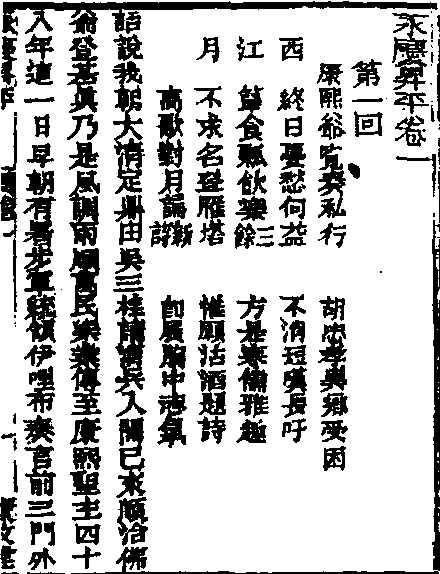 永慶昇平卷一
第一回
康熙爺覽奏私行 胡忠孝異鄉受困
西 終日憂愁何益 不消短嘆長吁
江 簞食瓢飲樂三餘 方是寒儒雅趣
月 不求名登雁塔 惟願沽酒題詩
高歌對月論新詩 卽展胸中志氣
話說我朝大清定鼎由吳三桂請清兵入關已來順治佛
爺登基眞乃是風調雨順萬民樂業傳至康熙聖主四十
八年這一日早朝有署步軍統領伊哩布奏言前三門外